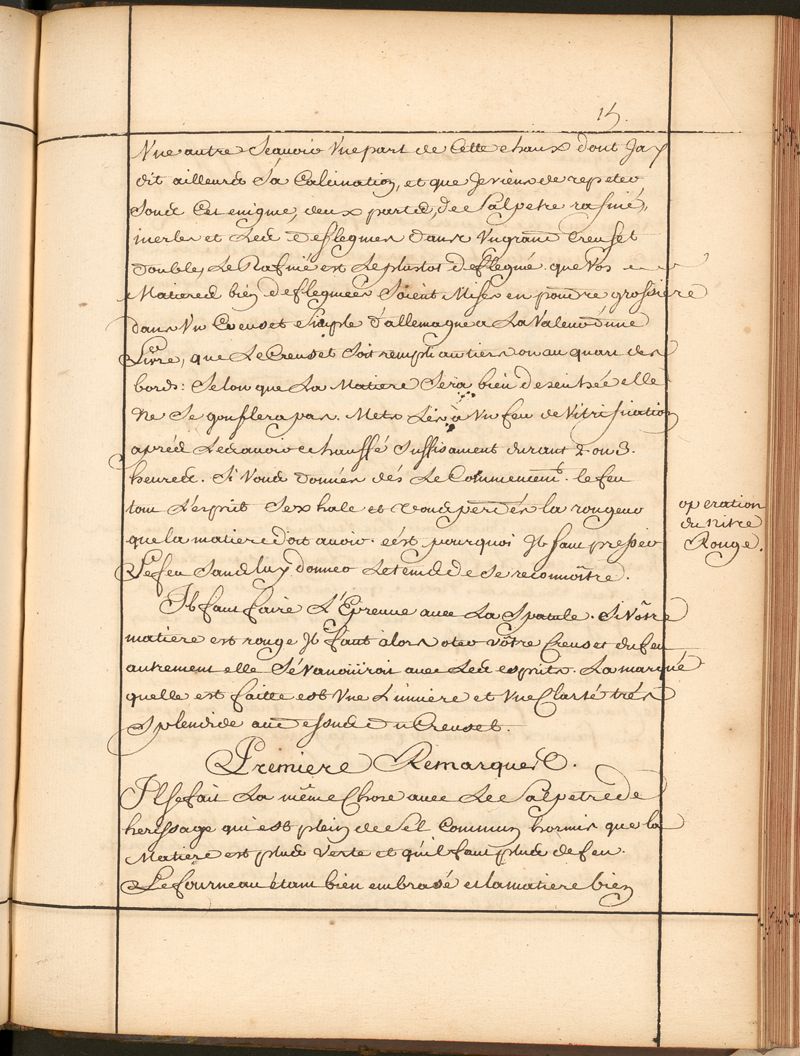 15.
Vne autre Scauoir Vne part de Cette chaux dont Jay
dit ailleurs Sa Calcination, et que Je viens de repeter
Sous Cet enigme, deux parties, de Salpetre rafiné,
mesles et Les deflegmes dans Vn grand Creuset
double, Le Rafiné est Le plustot deflegmé que Vos
Matieres bien deflegmees Soient Mises en poudre grossiere
dans Vn Creuset Simple d'allemagne a La Valeur d'une
Livre, que Le Creuset Soit rempli au tiers ou au quart des
bords: Selon que La Matiere Sera bien deseichée elle
Ne Se gonflera pas. Mets Les à Vn feu de Vitrification
aprés Les auoir chauffé Suffisament durant 2. ou 3.
heures. Si Vous donnés dés Le Commencemt. le feu
tout L'esprit S'exhale et Vous perdés la rougeur
que la matiere doit auoir. c'est pourquoi Il faut presser
Le feu Sans luy donner Le tems de Se reconnoître.
operation
du Nitre
Rouge.
Il faut faire L'Epreuue auec La Spatule. Si Vôtre
matiere est rouge Il faut alors oter vôtre Creuset du feu
autrement elle S'évanoüiroit auec Les esprits. La marque
quelle est faitte est Vne Lumiere et Vne Clarté trés
Splendide au fond du Creuset.
Premiere Remarque.
Il Se fait La même Chose auec Le Salpetre de
herissage qui est plein de Sel Commun hormis que la
Matiere est plus Verte et qu'il faut plus de feu.
Le fourneau étant bien embrasé et la matiere bien